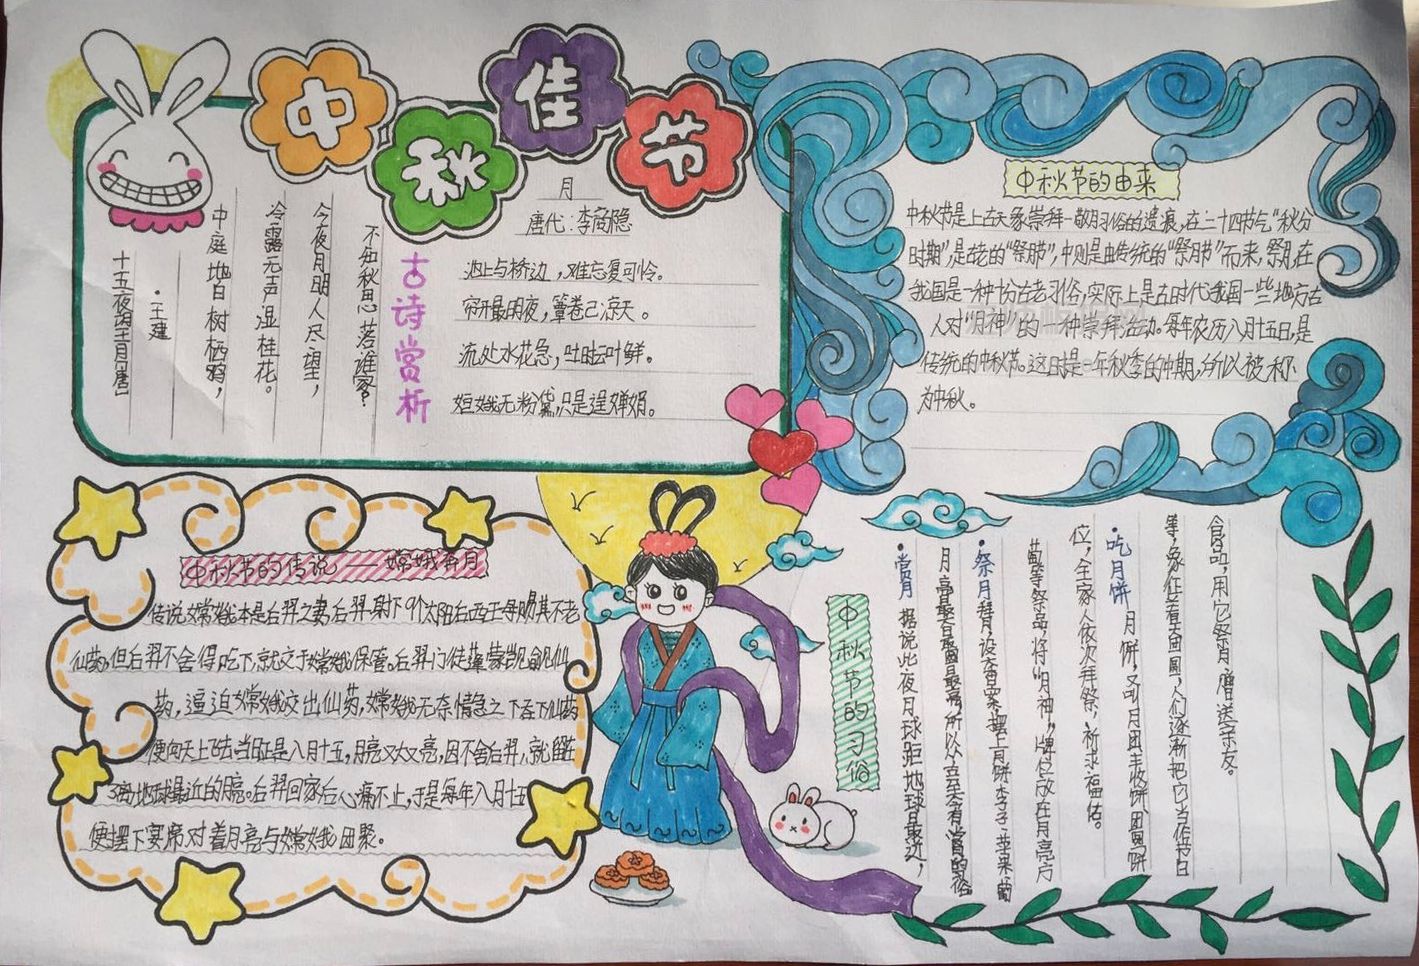 中秋佳节
月
唐代:李商隐
池上与桥边,难忘复可怜。
帘开最明夜,簟卷已凉天。
流处水花急,吐时云叶鲜。
姮娥无粉黛,只是逞婵娟。
古诗赏析
十五夜望月唐
·王建
中庭地白树栖鸦,
冷露无声湿桂花。
今夜月明人尽望,
不知秋思落谁家?
中秋节的由来
中秋节是上古天象崇拜一敬月习俗的遗痕,在二十四节气“秋分
时期”,是古老的“祭月节”,中秋则是由传统的“祭月节”而来,祭月,在
我国是一种十分古老习俗,实际上是古时代我国一些地方古
人对“月神”的一种崇拜活动。每年农历八月十五日,是
传统的中秋节。这时是一年秋季的中期,所以被称
为中秋。
中秋节的传说——嫦娥奔月
传说嫦娥本是后羿之妻后羿射下9个太阳后西王母赐其不老
仙药,但后羿不舍得吃下,就交于嫦娥保管。后羿门徒蓬蒙觊觎仙
药,逼迫嫦娥交出仙药,嫦娥无奈情急之下吞下仙药
便向天上飞去当日正是八月十五,月亮又大又亮,因不舍后羿,就留在
了离地球最近的月亮。后羿回家后心痛不止,于是每年八月十五
便摆下宴席对着月亮与嫦娥团聚。
中秋节的习俗
·赏月 据说此夜月球距地球最近,
月亮最大最圆最亮,所以
·祭月 拜,设大香案,摆上月饼、李子、苹果、葡
萄等祭品,将“月神”牌位放在月亮方
位,全家人依次拜祭,祈求福佑。
·吃月饼 月饼,又叫月团、丰收饼、团圆饼
等,象征着大团圆,人们逐渐把它当作节日
食品,用它祭月、赠送亲友。